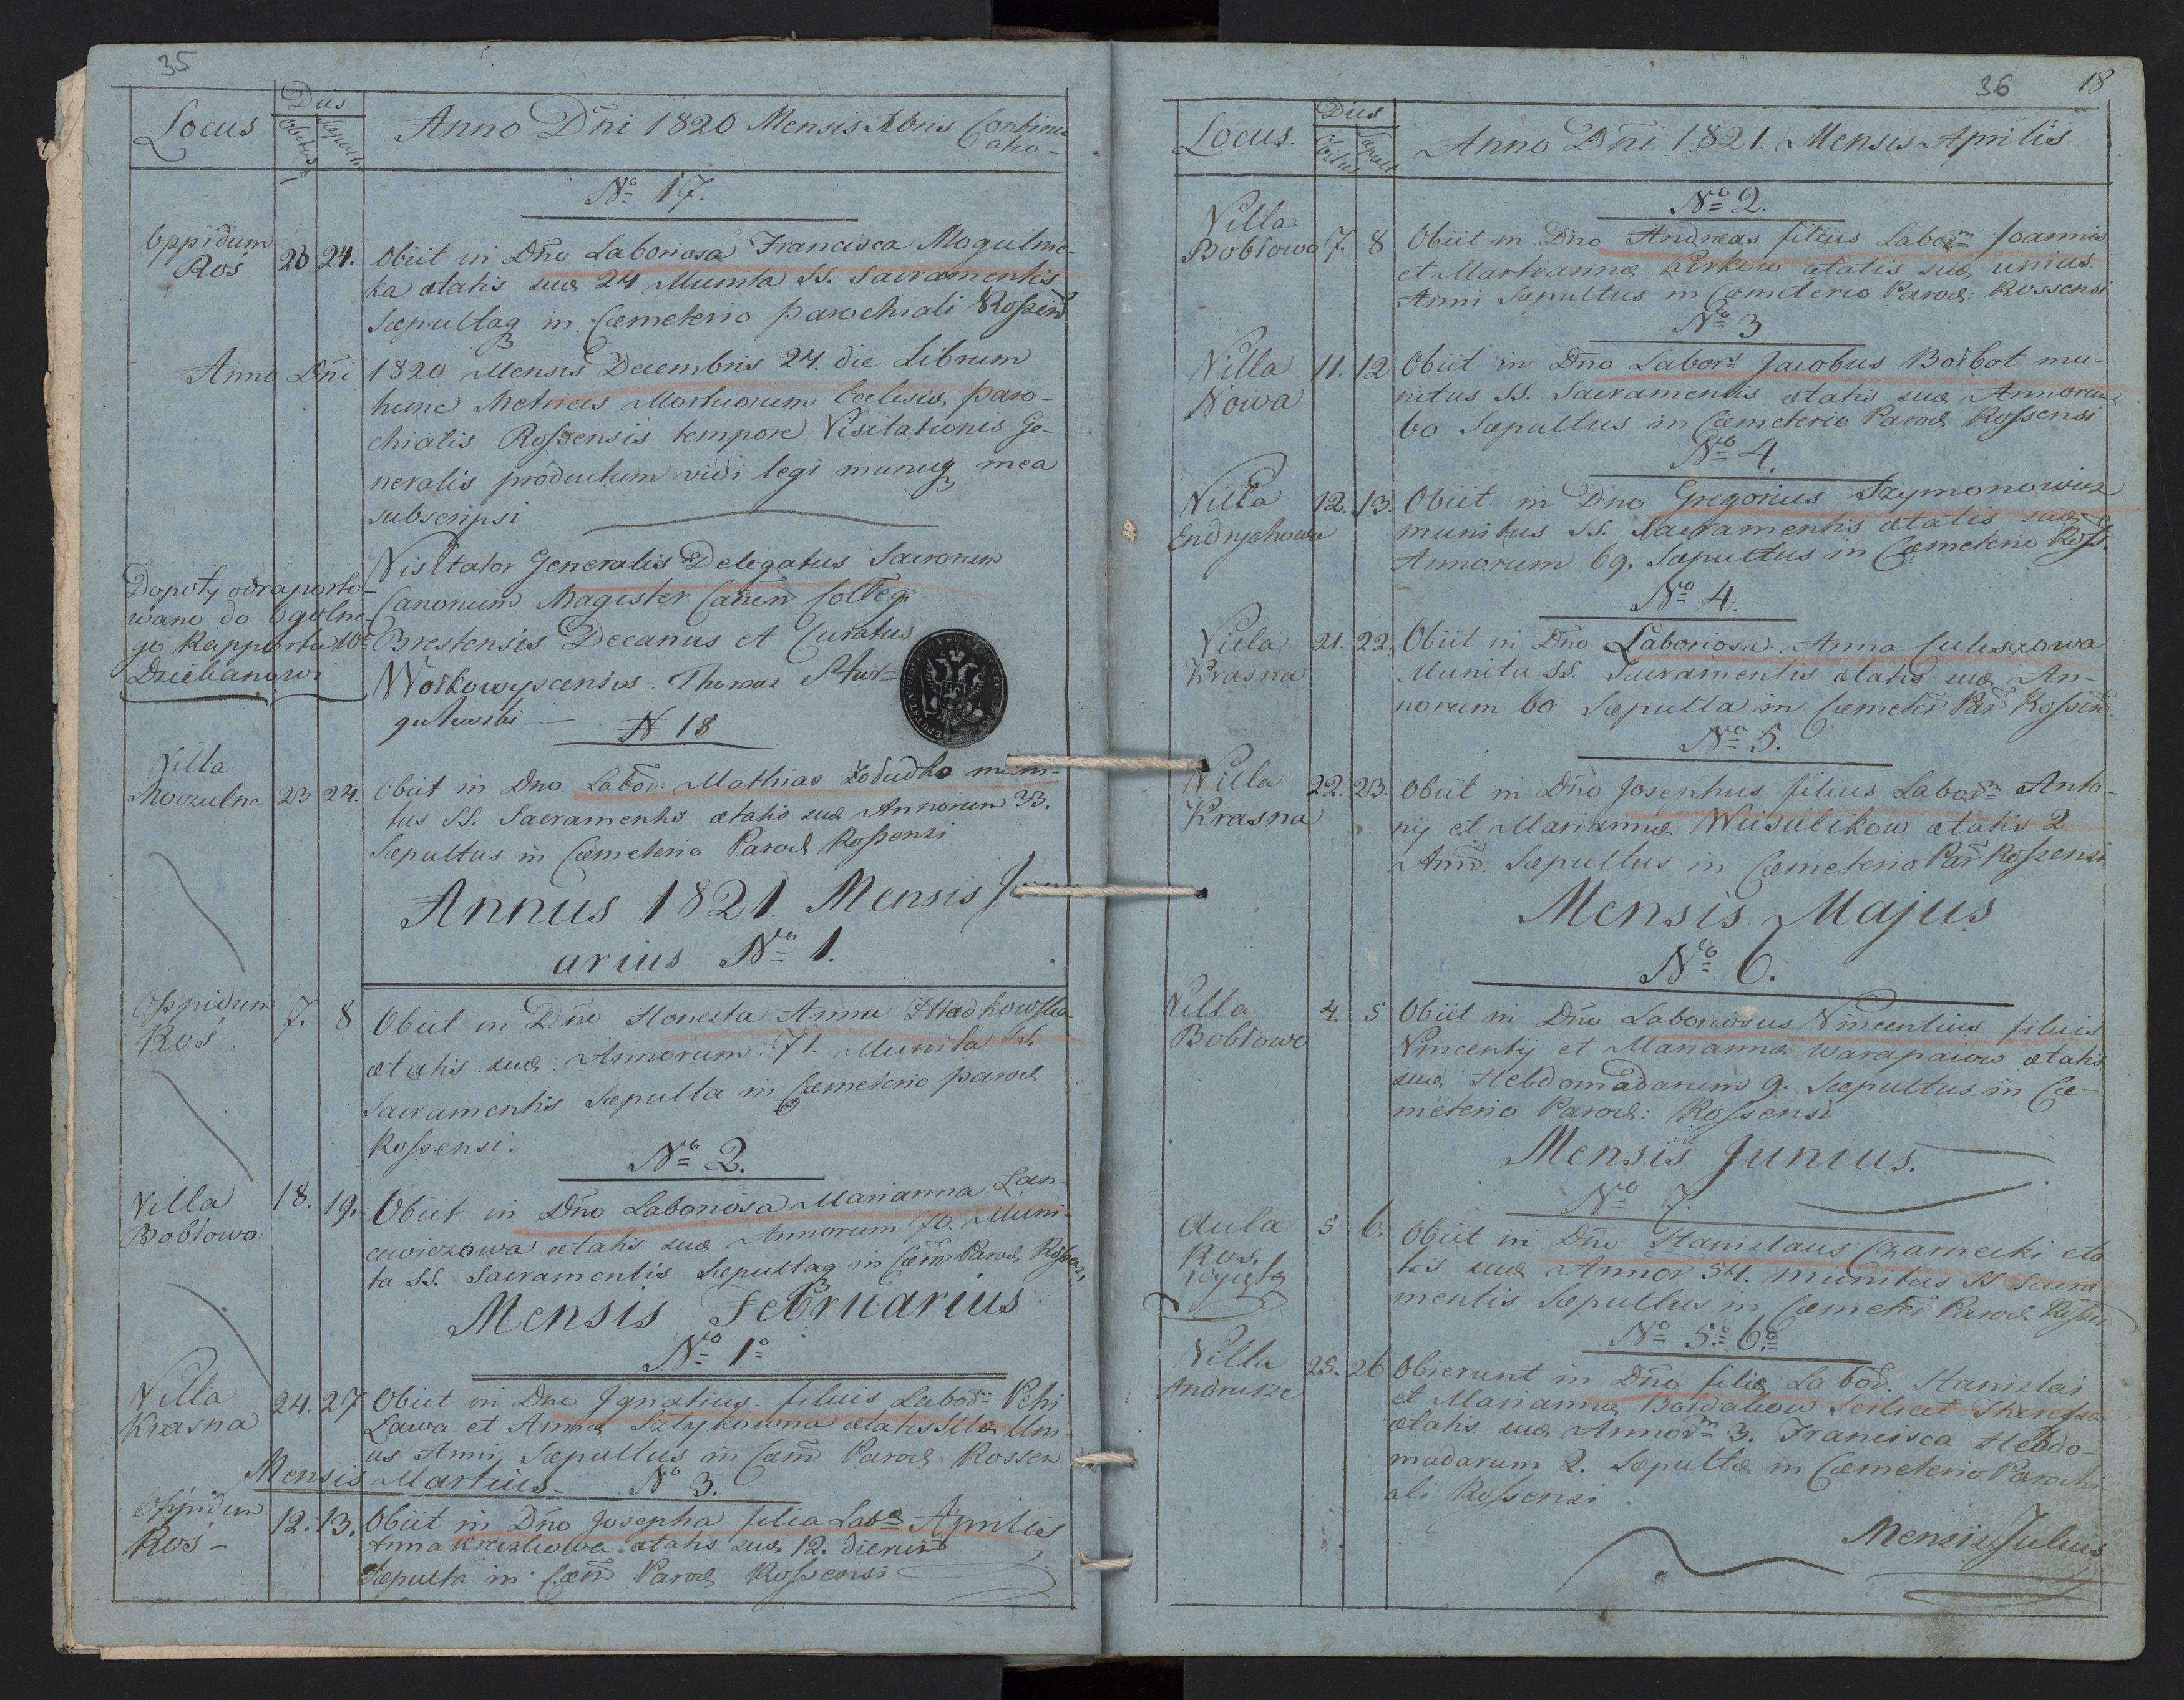 35
Locus
Dies
Obitus
Sepult
Anno Dñi 1820 Mensis Xbris Continu
atio-
No 17.
Oppidum
Roś
23 24.
Obiit in Dno Laboriosa Francisca Moguilnic-
ka ætatis suæ 24 Munita SS. Sacramentis
Sæpultaq in Cæmeterio parochiali Rossens
Anno Dñi 1820 Mensis Decembris 24. die Librum
hunc Metrices Mortuorum Eclesiæ paro-
chialis Rossensis tempore Visitationis Ge-
neralis productum vidi legi manuq mea
subscripsi
Visitator Generalis Delegatus Sacrorum
Canonum Magister Colleg.
Brestensis Decanus et Curatus
Wołkowyscensis Thomas
Dopoty odraporto-
wano do Ogolne-
go Rapportu We
Dziekanowi
N 18
Villa
Moczulna
23 24.
Obiit in Dno Labor. Mathias Zołudko muni-
tus SS. Sacramentis ætatis suæ Annorum 33.
Sæpultus in Cæmeterio Paroch Rossensi
Annus 1821. Mensis
arius No 1.
Oppidum
Roś.
7. 8
Obiit in Dno Honesta Anna Hładkowska
ætatis suæ Annorum 71. Munita SS.
Sacramentis Sæpulta in Cæmeterio paroch
Rossensi.
No 2.
Villa
Bobłowo
18. 19.
Obiit in Dno Laboriosa Marianna Lan-
cewiczowa ætatis suæ Annorum 70. Muni-
ta SS. Sacramentis Sæpultaq in Cæm Paroch Rossensi
Mensis Februarius
No 1o
Villa
Krasna
24. 27
Obiit in Dno Ignatius filius Labor
et Anna ætatis suæ Uni-
us Anni Sæpultus in Cæm Paroch Rossen
Mensis Martius- No 3.
Oppidum
Roś-
12. 13.
Obiit in Dno Josepha filia Labo Aprilis
Anna ætatis suæ 12. dierum
Sæpulta in Cæm Paroch Rossensi
36
18
Locus.
Dies
Obitus
Sepult
Anno Dñi 1821. Mensis Aprilis
No 2.
Villa
Bobłowo
7. 8
Obiit in Dno Andreas filius Laborm Joannis
et Martiannæ Kirkow ætatis suæ unius
Anni Sæpultus in Cæmeterio Paroch: Rossensi
No 3
Villa
Nowa
11. 12
Obiit in Dno Labors Jacobus Borbot mu-
nitus SS. Sacramentis ætatis suæ Annorum
60 Sæpultus in Cæmeterio Paroch Rossensi
No 4.
Villa
Endrychowce
12. 13.
Obiit in Dno Gregorius Szymonowicz
munitus SS. Sacramentis ætatis suæ
Annorum 69. Sæpultus in Cæmeterio Ross.
No 4.
Villa
Krasna
21. 22.
Obiit in Dno Laboriosa Anna Culeszowa
Munita SS. Sacramentis ætatis suæ An-
norum 60 Sæpulta in Cæmeter Par Rossens.
No 5.
Villa
Krasna
22. 23.
Obiit in Dno Josephus filius Laborm Anto-
nij et Mariannæ Wusulikow ætatis 2
Ann. Sæpultus in Cæmeterio Par Rossensi
Mensis Majus
No 6.
Villa
Bobłowo
4. 5
Obiit in Dno Laboriosus Vincentius filius
Vincentij et Mariannæ Warapaiow ætatis
suæ Hebdomadarum 9. Sæpultus in Cæ-
meterio Paroch: Rossensi
Mensis Junius.
No 7.
Aula
Ros.
5 6.
Obiit in Dno Stanislaus Czarnecki æta
tis suæ Annor 54. munitus SS Sacra
mentis Sæpultus in Cæmeter Paroch Rossen
No 5.o 6.o
Villa
Andrusze
25. 26
Obierunt in Dno filiæ Labor. Stanislai
et Mariannæ Bołdakow Scilicet Theressa
ætatis suæ Annorm 3. Francisca Hebdo-
madarum 2. Sæpultæ in Cæmeterio Parochi
ali Rossensi
Mensis Julius